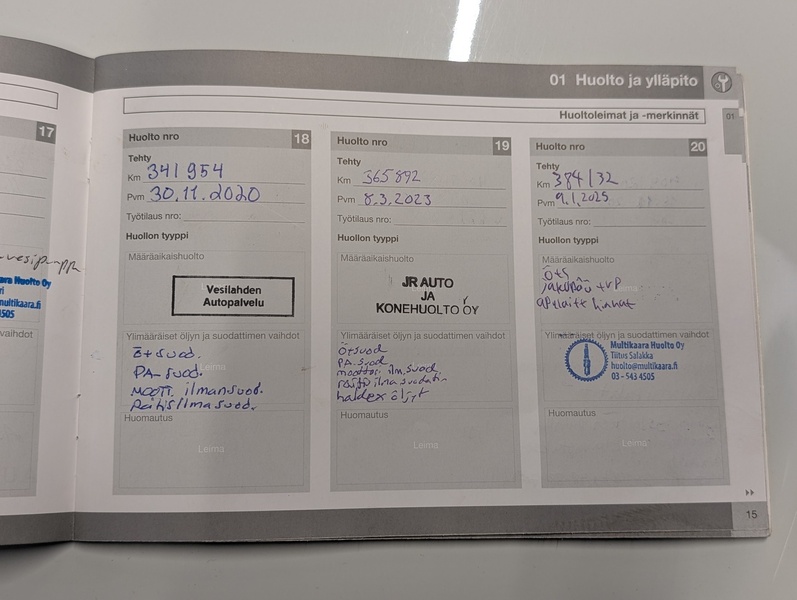 01 Huolto ja ylläpito
Huoltoleimat ja -merkinnät
01
17
vesipumppu
Multikaara Huolto Oy
multikaara.fi
4505
vaihdot
Huolto nro 18
Tehty
Km 341954
Pvm 30.11.2020
Työtilaus nro:
Huollon tyyppi
Määräaikaishuolto
Vesilahden
Autopalvelu
Ylimääräiset öljyn ja suodattimen vaihdot
ö+suod.
PA-suod.
moott. ilmansuod.
Raitisilmasuod.
Huomautus
Leima
Huolto nro 19
Tehty
Km 365892
Pvm 8.3.2023
Työtilaus nro:
Huollon tyyppi
Määräaikaishuolto
JR AUTO
JA
KONEHUOLTO OY
Ylimääräiset öljyn ja suodattimen vaihdot
ö+suod
PA suod
moottori ilm.suod.
haldex öljyt
Huomautus
Leima
Huolto nro 20
Tehty
Km 384132
Pvm 9.1.2025
Työtilaus nro:
Huollon tyyppi
Määräaikaishuolto
ö+s
jakopää +vp
apulaite hihnat
Ylimääräiset öljyn ja suodattimen vaihdot
Multikaara Huolto Oy
Tiitus Salakka
huolto@multikaara.fi
03 - 543 4505
Huomautus
Leima
15